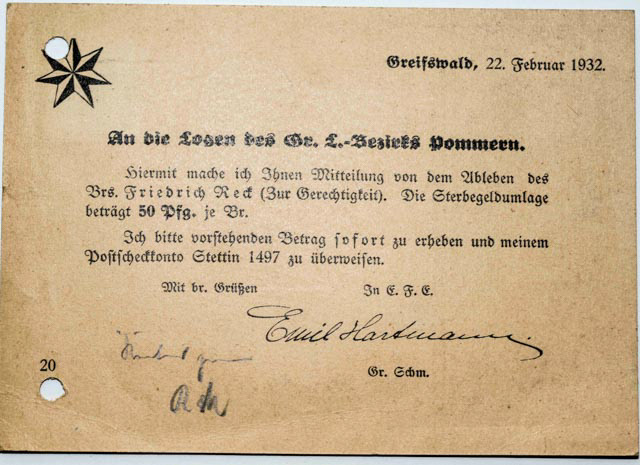 Greifswald, 22. Februar 1932.
An die Logen des Gr. L.-Bezirks Pommern.
Hiermit mache ich Ihnen Mitteilung von dem Ableben des
Brs. Friedrich Reck (Zur Gerechtigkeit). Die Sterbegeldumlage
beträgt 50 Pfg. je Br.
Ich bitte vorstehenden Betrag sofort zu erheben und meinem
Postscheckkonto Stettin 1497 zu überweisen.
Mit br. Grüßen In E. F. E.
Emil Hartmann.
20
Gr. Schm.